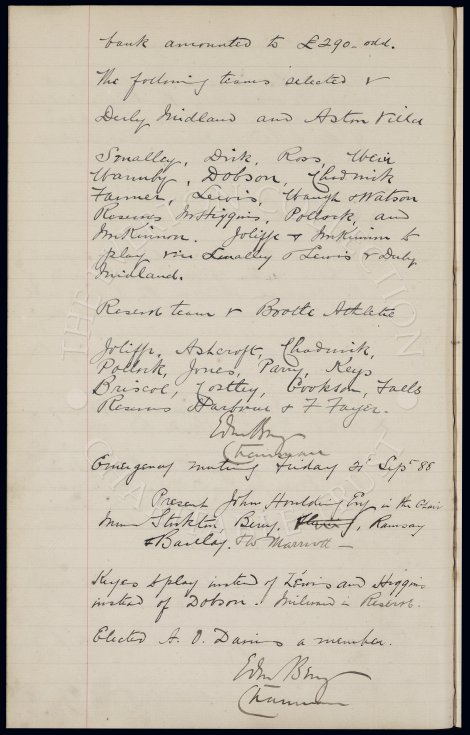 bank amounted to £290 odd.
The following teams selected v
Derby Midland and Aston Villa
Smalley, Dick, Ross, Weir
Warmby, Dobson, Chadwick
Farmer, Lewis, Waugh & Watson
Reserves McHiggins, Pollock, and
McKinnon. Joliffe & McKinnon to
play vice Smalley & Lewis v Derby
Midland.
Reserve team v Bootle Athletic
Joliffe, Ashcroft, Chadwick,
Pollock, Jones, Parry, Keys
Briscoe, Costley, Cookson, Falls
Reserves Harbour & F Fayer.
Edwn Berry
Chairman
Emergency meeting Friday 21st Sept 88
Present John Houlding Esq in the Chair
Stockton, Berry, Ramsay
& Barclay. & W Marriott —
Keyes to play instead of Lewis and Higgins
instead of Dobson. Milward in Reserve.
Elected A. O. Davies a member.
Edwn Berry
Chairman